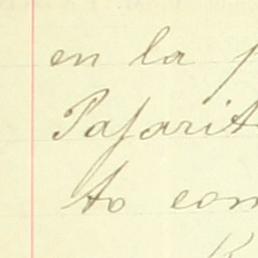 en la p
Pajarit
to con